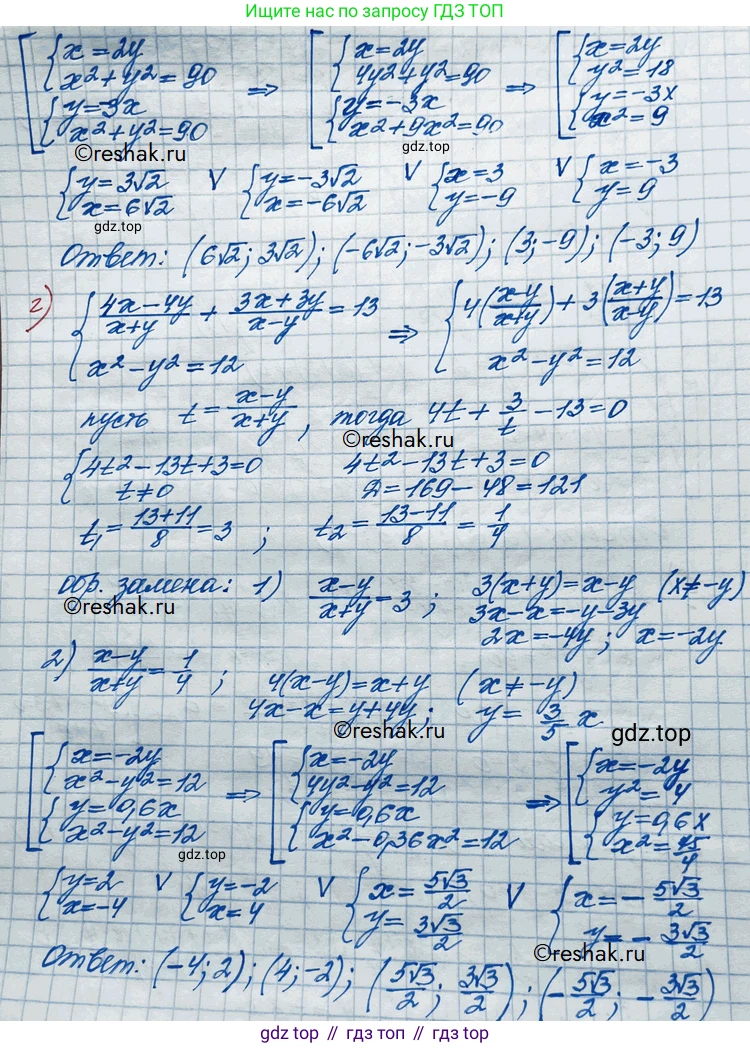 Ищите нас по запросу ГДЗ ТОП
[{x=2y x²+y²=90 {y=-3x x²+y²=90 => [{x=2y 4y²+y²=90 {y=-3x x²+9x²=90 => [{x=2y y²=18 {y=-3x x²=9
©reshak.ru gdz.top
{y=3√2 x=6√2 V {y=-3√2 x=-6√2 V {x=3 y=-9 V {x=-3 y=9
gdz.top ©reshak.ru
Ответ: (6√2; 3√2); (-6√2; -3√2); (3;-9); (-3; 9)
г) {(4x-4y)/(x+y) + (3x+3y)/(x-y) = 13 x²-y²=12 => {4((x-y)/(x+y)) + 3((x+y)/(x-y)) = 13 x²-y²=12
пусть t=(x-y)/(x+y), тогда 4t + 3/t - 13=0
©reshak.ru
{4t²-13t+3=0 t≠0 4t²-13t+3=0
Д=169-48=121
t₁=(13+11)/8=3; t₂=(13-11)/8=1/4
обр. замена: 1) (x-y)/(x+y)=3; 3(x+y)=x-y (x≠-y)
©reshak.ru
3x-x=-y-3y
2x=-4y; x=-2y
2) (x-y)/(x+y)=1/4; 4(x-y)=x+y (x≠-y)
4x-x=y+4y; y=3/5 x
©reshak.ru gdz.top
[{x=-2y x²-y²=12 {y=0,6x x²-y²=12 => [{x=-2y 4y²-y²=12 {y=0,6x x²-0,36x²=12 => [{x=-2y y²=4 {y=0,6x x²=75/4
gdz.top
{y=2 x=-4 V {y=-2 x=4 V {x=5√3/2 y=3√3/2 V {x=-5√3/2 y=-3√3/2
©reshak.ru
Ответ: (-4; 2); (4; -2); (5√3/2; 3√3/2); (-5√3/2; -3√3/2)
gdz.top // гдз топ // гдз.top